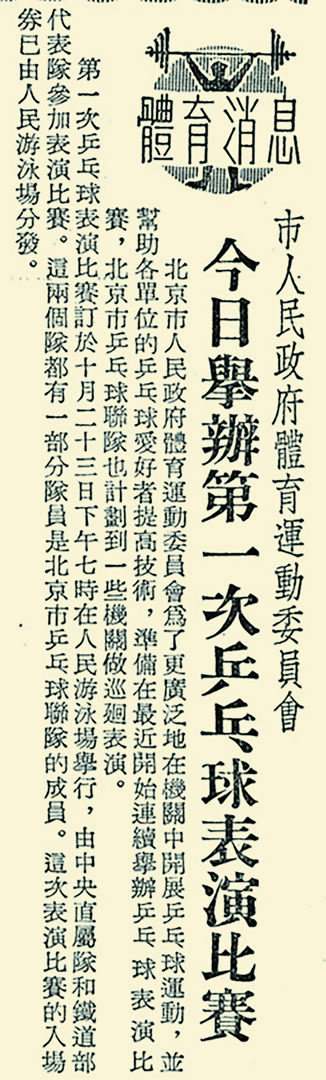 體育消息
市人民政府體育運動委員會
今日舉辦第一次乒乓球表演比賽
北京市人民政府體育運動委員會爲了更廣泛地在機關中開展乒乓球運動，並
幫助各單位的乒乓球愛好者提高技術，準備在最近開始連續舉辦乒乓球表演比
賽，北京市乒乓球聯隊也計劃到一些機關做巡廻表演。
第一次乒乓球表演比賽訂於十月二十三日下午七時在人民游泳場舉行，由中央直屬隊和鐵道部
代表隊參加表演比賽。這兩個隊都有一部分隊員是北京市乒乓球聯隊的成員。這次表演比賽的入場
券已由人民游泳場分發。